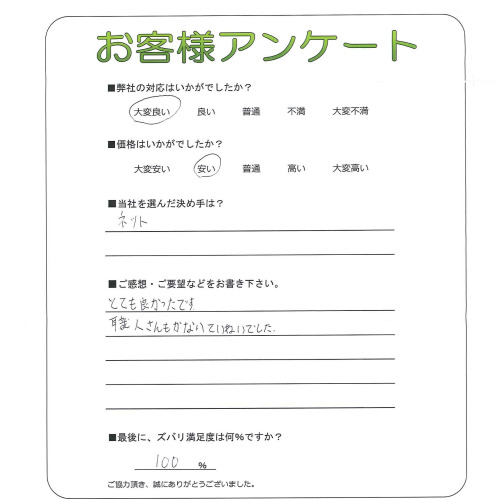 お客様アンケート
■弊社の対応はいかがでしたか？
大変良い 良い 普通 不満 大変不満
■価格はいかがでしたか？
大変安い 安い 普通 高い 大変高い
■当社を選んだ決め手は？
ネット
■ご感想・ご要望などをお書き下さい。
とても良かったです
職人さんもかないていねいでした.
■最後に、ズバリ満足度は何%ですか？
100 %
ご協力頂き、誠にありがとうございました。